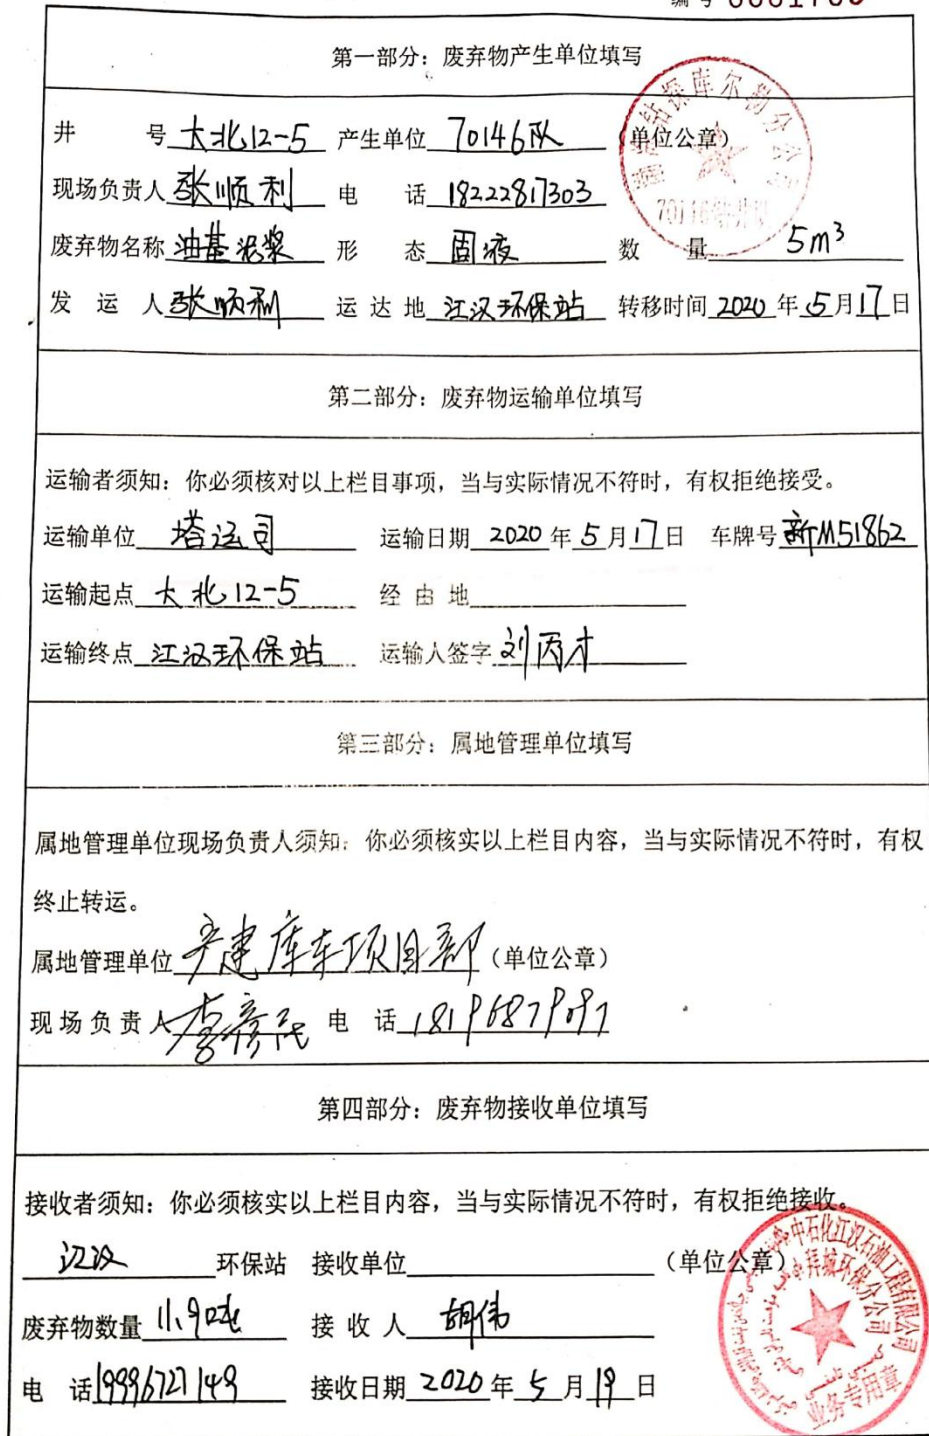 编号 0001700
第一部分：废弃物产生单位填写
井 号 大北12-5 产生单位 70146队 （单位公章）
现场负责人 张顺利 电 话 18222817303
废弃物名称 油基泥浆 形 态 固液 数 量 5m³
发 运 人 张顺利 运 达 地 江汉环保站 转移时间 2020 年 5 月 17 日
第二部分：废弃物运输单位填写
运输者须知：你必须核对以上栏目事项，当与实际情况不符时，有权拒绝接受。
运输单位 塔运司 运输日期 2020 年 5 月 17 日 车牌号 新M51862
运输起点 大北12-5 经 由 地
运输终点 江汉环保站 运输人签字 刘丙才
第三部分：属地管理单位填写
属地管理单位现场负责人须知：你必须核实以上栏目内容，当与实际情况不符时，有权
终止转运。
属地管理单位 产建库车项目部 （单位公章）
现场负责人 李彦民 电 话 18196879097
第四部分：废弃物接收单位填写
接收者须知：你必须核实以上栏目内容，当与实际情况不符时，有权拒绝接收。
江汉 环保站 接收单位 （单位公章）
废弃物数量 11.9吨 接 收 人 胡伟
电 话 19996727149 接收日期 2020 年 5 月 19 日
中石化江汉石油工程有限公司
拜城环保分公司
业务专用章